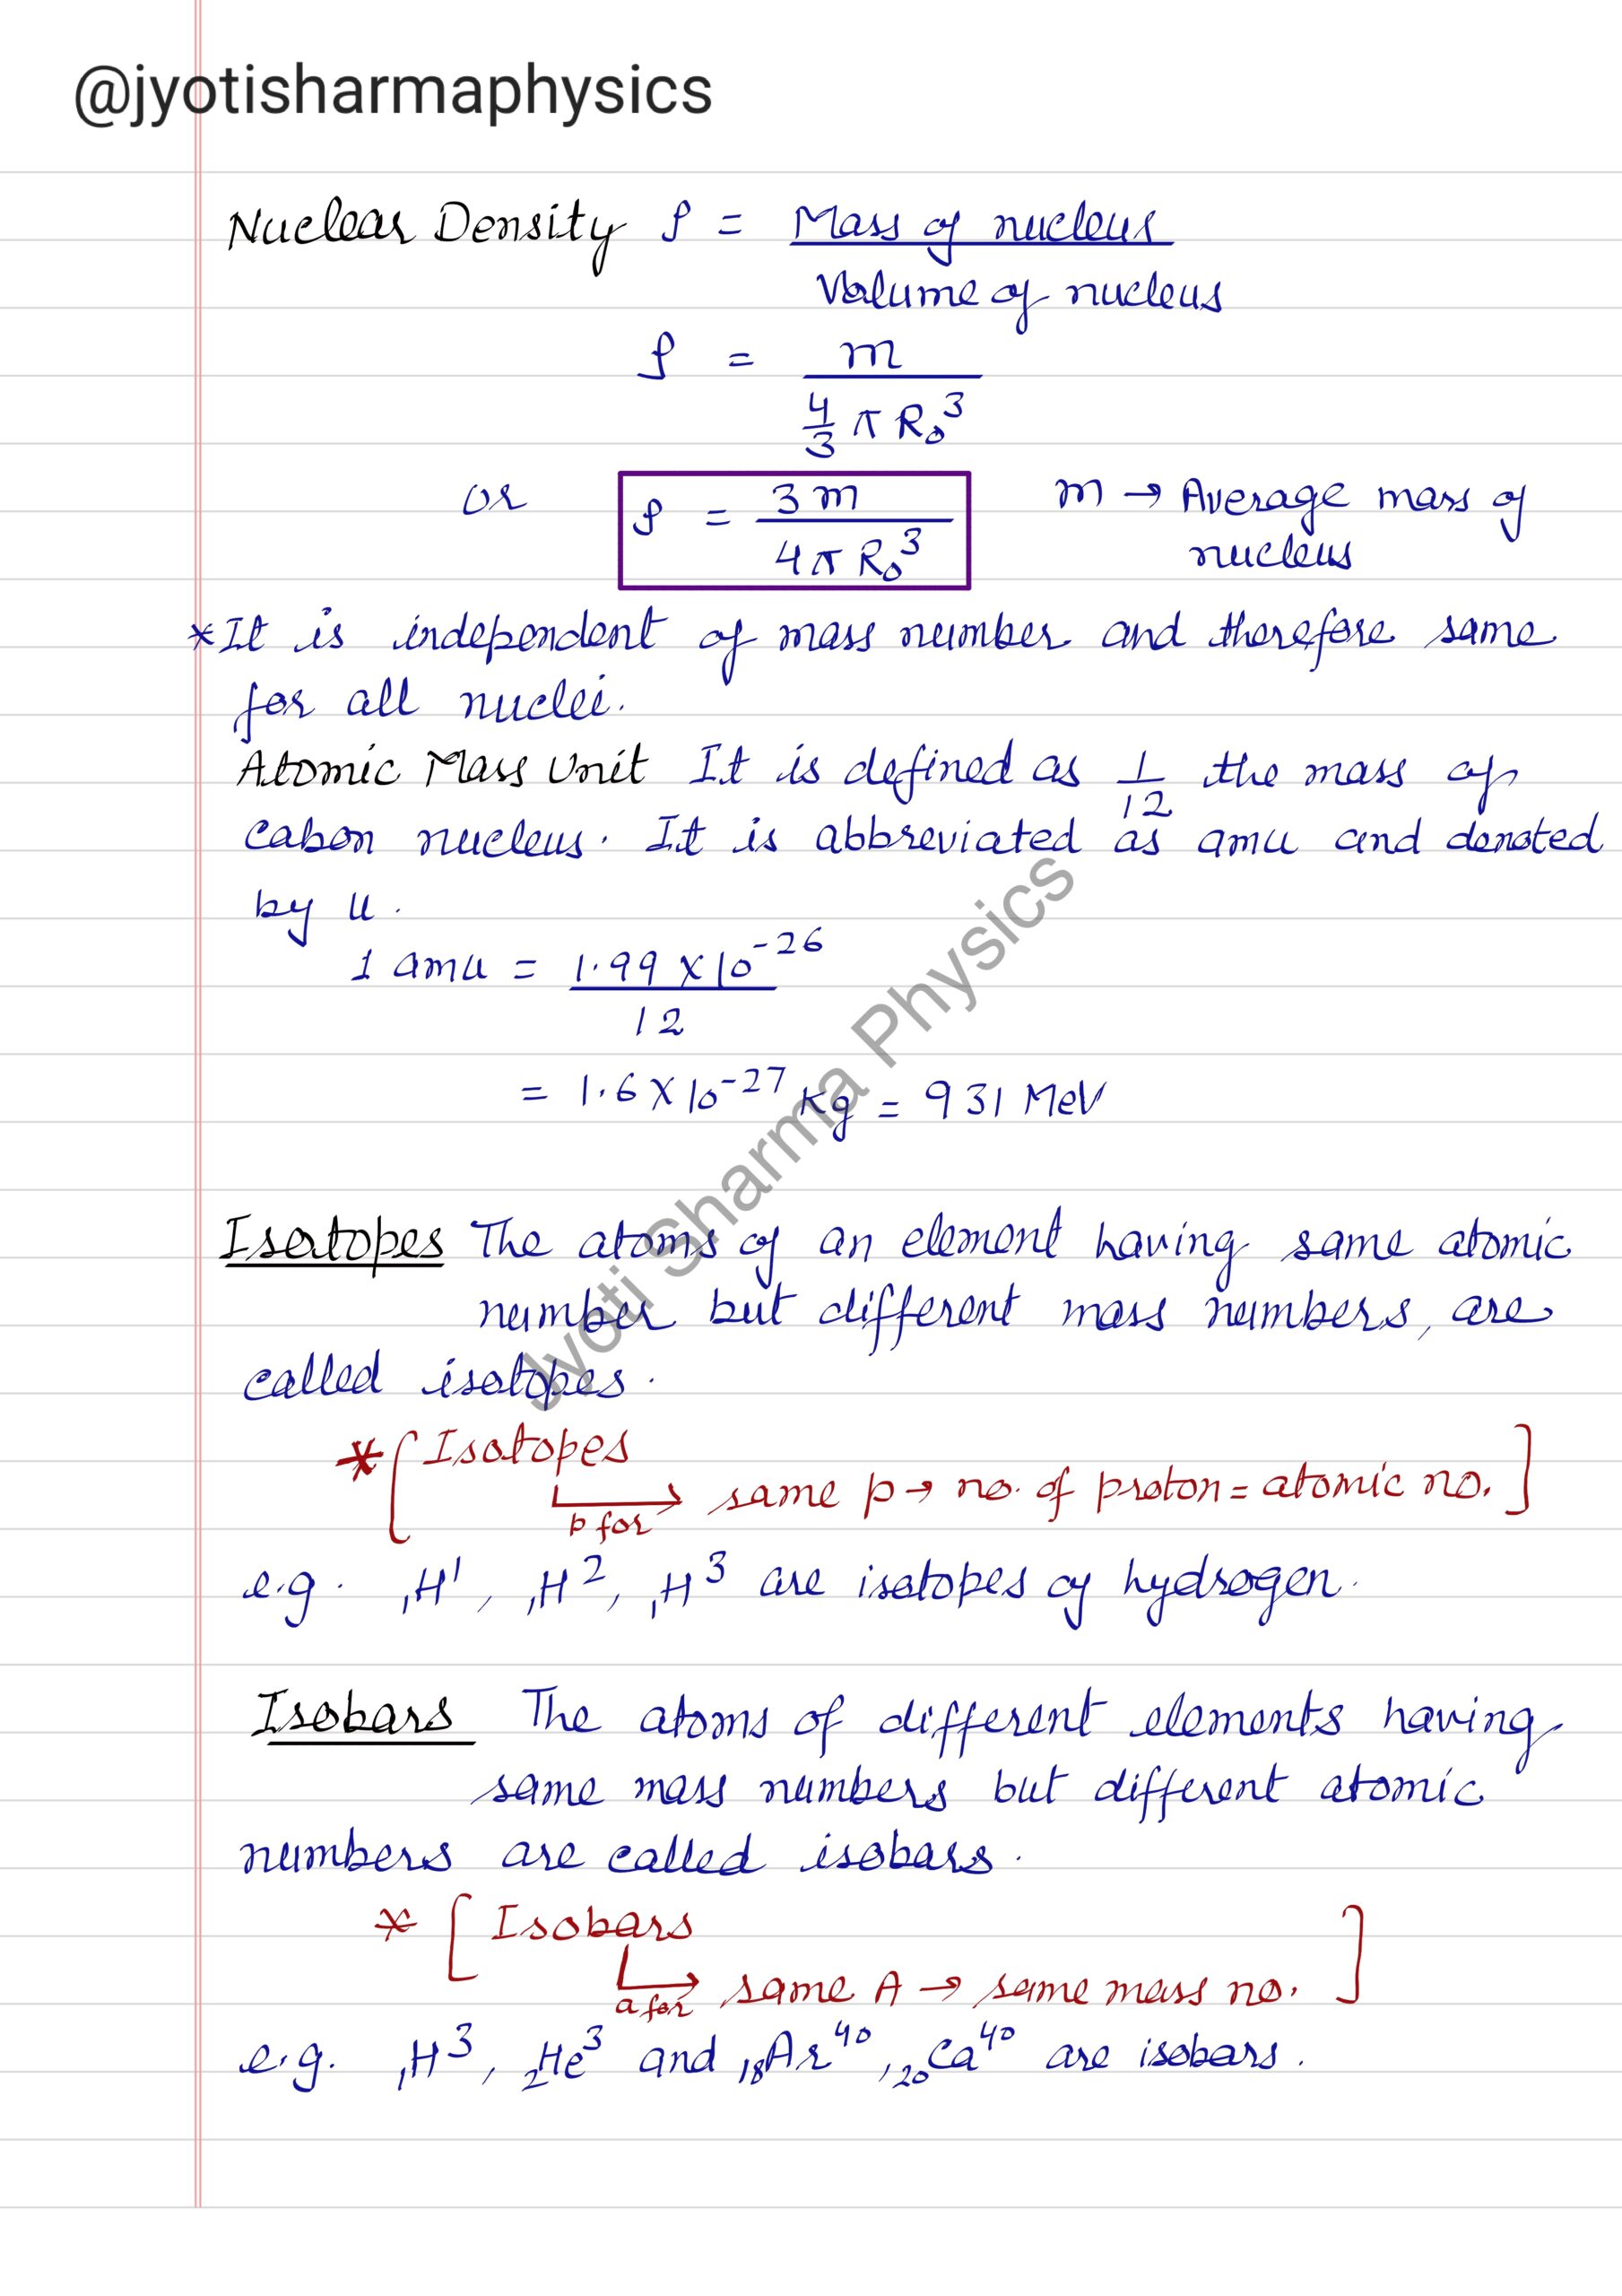 @jyotisharmaphysics
Nuclear Density ρ = Mass of nucleus
Volume of nucleus
ρ = m
4/3 π R₀³
or ρ = 3m / 4π R₀³ m → Average mass of
nucleus
*It is independent of mass number and therefore same
for all nuclei.
Atomic Mass Unit It is defined as 1/12 the mass of
Cabon nucleus. It is abbreviated as amu and denoted
by u.
1 amu = 1.99 × 10⁻²⁶
12
= 1.6 × 10⁻²⁷ Kg = 931 MeV
Isotopes The atoms of an element having same atomic
number but different mass numbers, are
called isotopes.
* [ Isotopes
p for → same p → no. of proton = atomic no. ]
e.g. ₁H¹, ₁H², ₁H³ are isotopes of hydrogen.
Isobars The atoms of different elements having
same mass numbers but different atomic
numbers are called isobars.
* [ Isobars
a for → same A → same mass no. ]
e.g. ₁H³, ₂He³ and ₁₈Ar⁴⁰, ₂₀Ca⁴⁰ are isobars.
Jyoti Sharma Physics